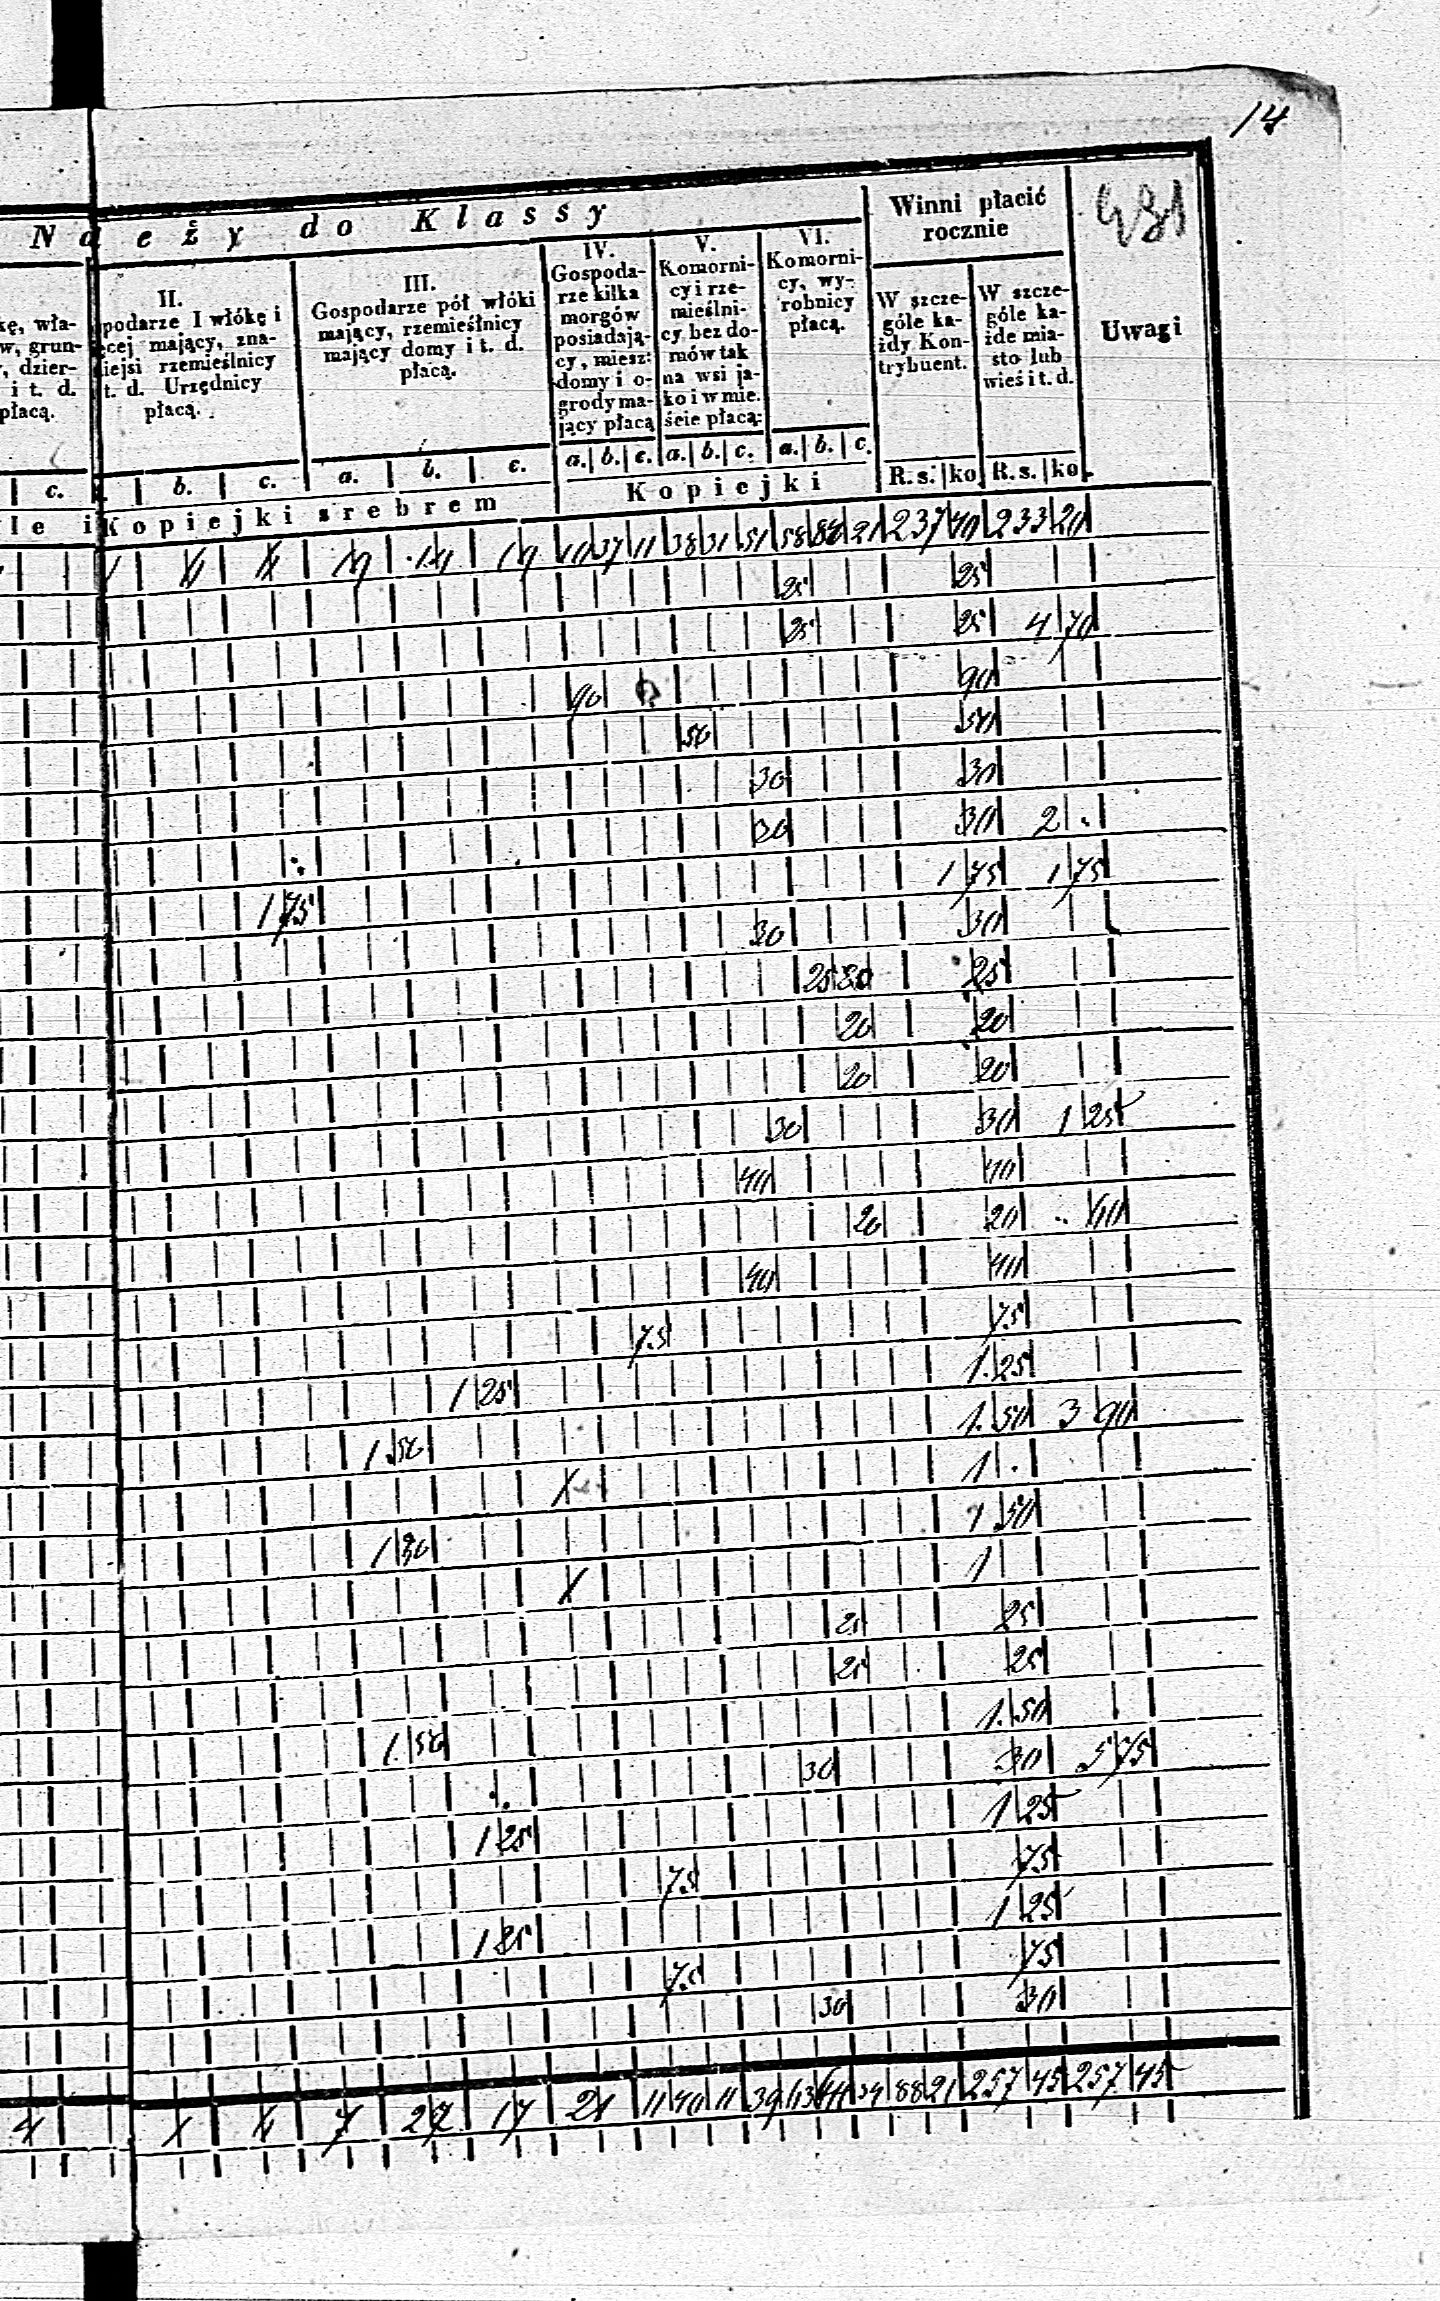 14
Należy do Klassy
Winni płacić
rocznie
431
kę, wła-
w, grun-
, dzier-
i t. d.
płacą.
II.
podarze I włókę i
ęcej mający, zna-
iejsi rzemieślnicy
t. d. Urzędnicy
płacą.
III.
Gospodarze pół włóki
mający, rzemieślnicy
mający domy i t. d.
płacą.
IV.
Gospoda-
rze kilka
morgów
posiadają-
cy, miesz:
domy i o-
grody ma-
jący płacą
V.
Komorni-
cy i rze-
mieślni-
cy bez do-
mów tak
na wsi ja-
ko i w mie.
ście płacą:
VI.
Komorni-
cy, wy-
robnicy
płacą.
W szcze-
góle ka-
żdy Kon-
trybuent.
W szcze-
góle ka-
żde mia-
sto lub
wieś i t. d.
Uwagi
c. b. c. a. b. c. a. b. c. a. b. c. a. b. c. R. s. ko R. s. ko
le i Kopiejki srebrem Kopiejki
37 11 38 31 51 58 21 237 40 233 20
25 25
25 25 4 70
90 90
50 50
30 30
30 30 2 .
1 75 1 75 1 75
30 30
25 25
20 20
20 20
30 30 1 25
40 40
20 20 60
40 40
75 75
1 25 1.25
1.50 1.50 3 90
1 .
1 50 1 50
1
25 25
25 25
1.50 1.50
30 30 5 75
1 25 1 25
75 75
1 25 1 25
75 75
30 30
4 7 27 17 21 11 40 11 39 34 88 21 257 45 257 45